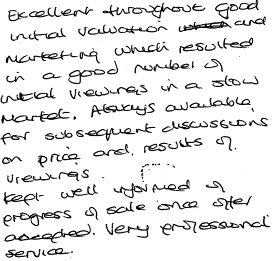 Excellent throughout good
initial valuation and
marketing which resulted
in a good number of
initial viewings in a slow
market. Always available
for subsequent discussions
on price and results of
viewings.
Kept well informed of
progress of sale once offer
accepted. Very professional
service.